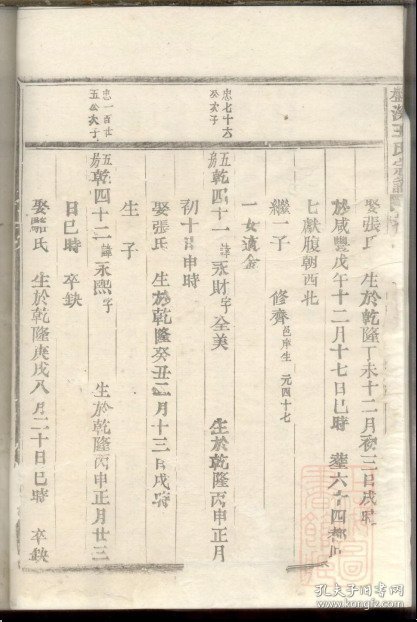 娶張氏　生於乾隆丁未十二月初三日戌時
於咸豐戊午十二月十七日巳時　葬六十四都
七獻腹朝西北
繼一子　修齊邑庠生　元四十七
一女適金
忠七十六公次子
五房乾四十一　諱永財字全美　生於乾隆丙申正月
初十日申時
娶張氏　生於乾隆癸丑二月十三日戌時
生子
忠一百廿五公次子
五房乾四十二　諱永熙字　生於乾隆丙申正月廿三
日巳時　卒缺
娶駱氏　生於乾隆庚戌八月二十日巳時　卒缺
王氏宗譜
孔夫子旧书网